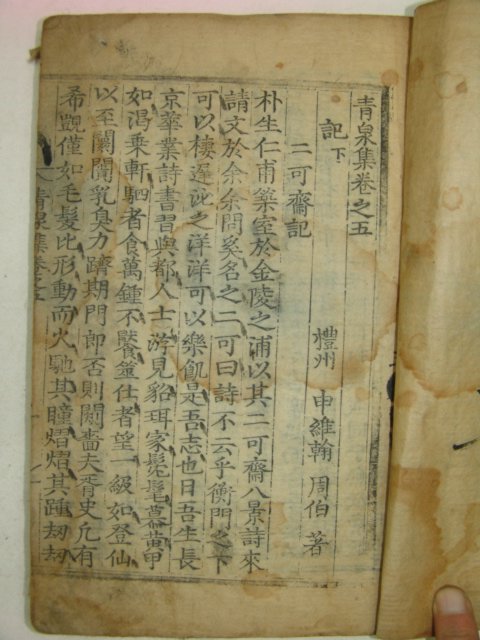 青泉集卷之五
禮州 申維翰 周伯 著
記下
二可齋記
朴生仁甫築室於金陵之浦以其二可齋八景詩來
請文於余余問奚名之二可曰詩不云乎衡門之下
可以棲遲泌之洋洋可以樂飢是吾志也日吾生長
京華業詩書習與都人士游見貂珥家髡髦慕黃甲
如渴乘軒駟者食萬鍾不饜筮仕者望一級如登仙
以至闤闠乳臭力躋期門郎否則闕嗇夫胥史凢有
希覬僅如毛髮比形動而火馳其瞳熠熠其踵刼刼
青泉集卷之五